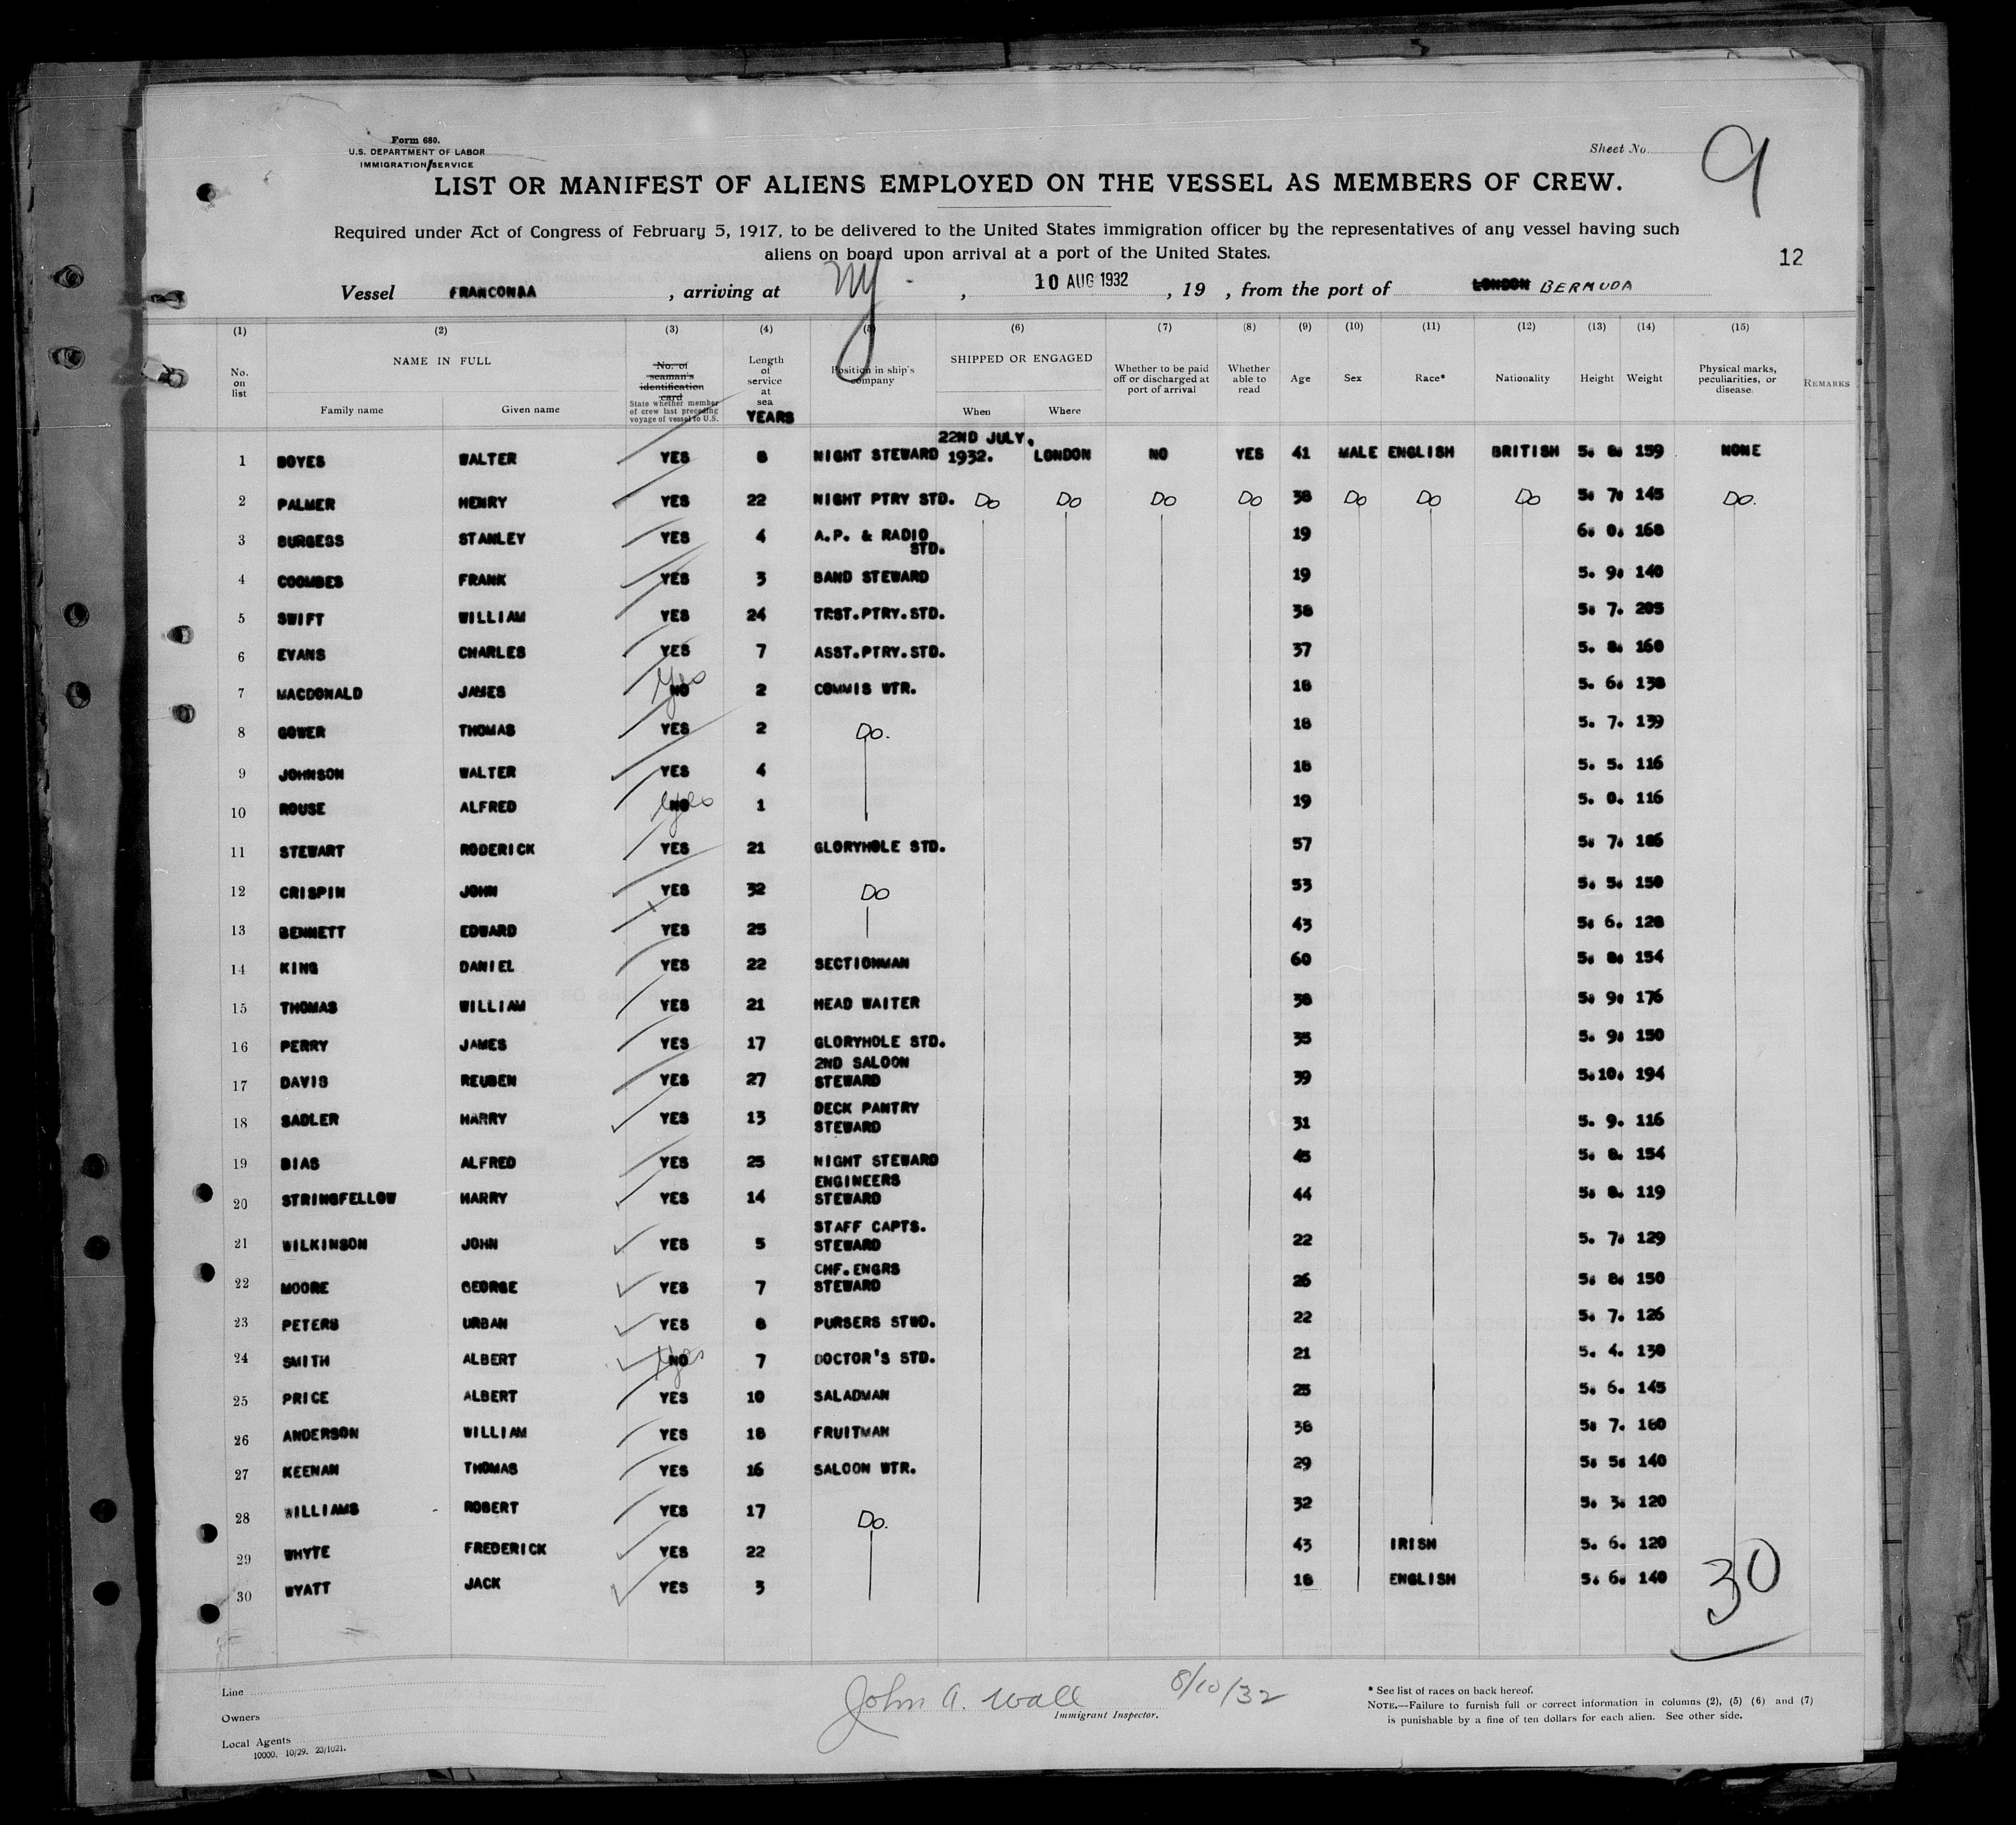 Form 680.
U.S. DEPARTMENT OF LABOR
IMMIGRATION SERVICE
Sheet No. 9
LIST OR MANIFEST OF ALIENS EMPLOYED ON THE VESSEL AS MEMBERS OF CREW.
Required under Act of Congress of February 5, 1917, to be delivered to the United States immigration officer by the representatives of any vessel having such
aliens on board upon arrival at a port of the United States.
12
Vessel FRANCONIA, arriving at NY, 10 AUG 1932, 19 , from the port of LONDON BERMUDA
(1) (2) (3) (4) (5) (6) (7) (8) (9) (10) (11) (12) (13) (14) (15)
No. on list NAME IN FULL Family name Given name No. of seaman's identification card State whether member of crew last preceding voyage of vessel to U.S. Length of service at sea YEARS Position in ship's company SHIPPED OR ENGAGED When Where Whether to be paid off or discharged at port of arrival Whether able to read Age Sex Race* Nationality Height Weight Physical marks, peculiarities, or disease REMARKS
1 BOYES WALTER YES 8 NIGHT STEWARD 22ND JULY, 1932. LONDON NO YES 41 MALE ENGLISH BRITISH 5. 8. 159 NONE
2 PALMER HENRY YES 22 NIGHT PTRY STD. Do Do Do Do 38 Do Do Do 5. 7. 145 Do.
3 BURGESS STANLEY YES 4 A.P. & RADIO STD. 19 6. 0. 168
4 COOMBES FRANK YES 3 BAND STEWARD 19 5. 9. 140
5 SWIFT WILLIAM YES 24 TRST.PTRY.STD. 38 5. 7. 205
6 EVANS CHARLES YES 7 ASST.PTRY.STD. 37 5. 8. 160
7 MACDONALD JAMES NO Yes 2 COMMIS WTR. 18 5. 6. 138
8 GOWER THOMAS YES 2 Do. 18 5. 7. 139
9 JOHNSON WALTER YES 4 18 5. 5. 116
10 ROUSE ALFRED NO Yes 1 19 5. 0. 116
11 STEWART RODERICK YES 21 GLORYHOLE STD. 57 5. 7. 186
12 CRISPIN JOHN YES 32 Do 53 5. 5. 150
13 BENNETT EDWARD YES 25 43 5. 6. 128
14 KING DANIEL YES 22 SECTIONMAN 60 5. 8. 154
15 THOMAS WILLIAM YES 21 HEAD WAITER 38 5. 9. 176
16 PERRY JAMES YES 17 GLORYHOLE STD. 35 5. 9. 150
17 DAVIS REUBEN YES 27 2ND SALOON STEWARD 39 5.10. 194
18 SADLER HARRY YES 13 DECK PANTRY STEWARD 31 5. 9. 116
19 BIAS ALFRED YES 25 NIGHT STEWARD 45 5. 8. 154
20 STRINGFELLOW HARRY YES 14 ENGINEERS STEWARD 44 5. 8. 119
21 WILKINSON JOHN YES 5 STAFF CAPTS. STEWARD 22 5. 7. 129
22 MOORE GEORGE YES 7 CHF.ENGRS STEWARD 26 5. 8. 150
23 PETERS URBAN YES 8 PURSERS STWD. 22 5. 7. 126
24 SMITH ALBERT NO Yes 7 DOCTOR'S STD. 21 5. 4. 130
25 PRICE ALBERT YES 10 SALADMAN 25 5. 6. 145
26 ANDERSON WILLIAM YES 18 FRUITMAN 38 5. 7. 160
27 KEENAN THOMAS YES 16 SALOON WTR. 29 5. 5. 140
28 WILLIAMS ROBERT YES 17 Do. 32 5. 3. 120
29 WHYTE FREDERICK YES 22 43 IRISH 5. 6. 120
30 WYATT JACK YES 3 18 ENGLISH 5. 6. 140
30
Line
Owners
Local Agents
10000, 10/29. 23/1021.
John A. Wall 8/10/32
Immigrant Inspector.
* See list of races on back hereof.
NOTE.—Failure to furnish full or correct information in columns (2), (5) (6) and (7)
is punishable by a fine of ten dollars for each alien. See other side.